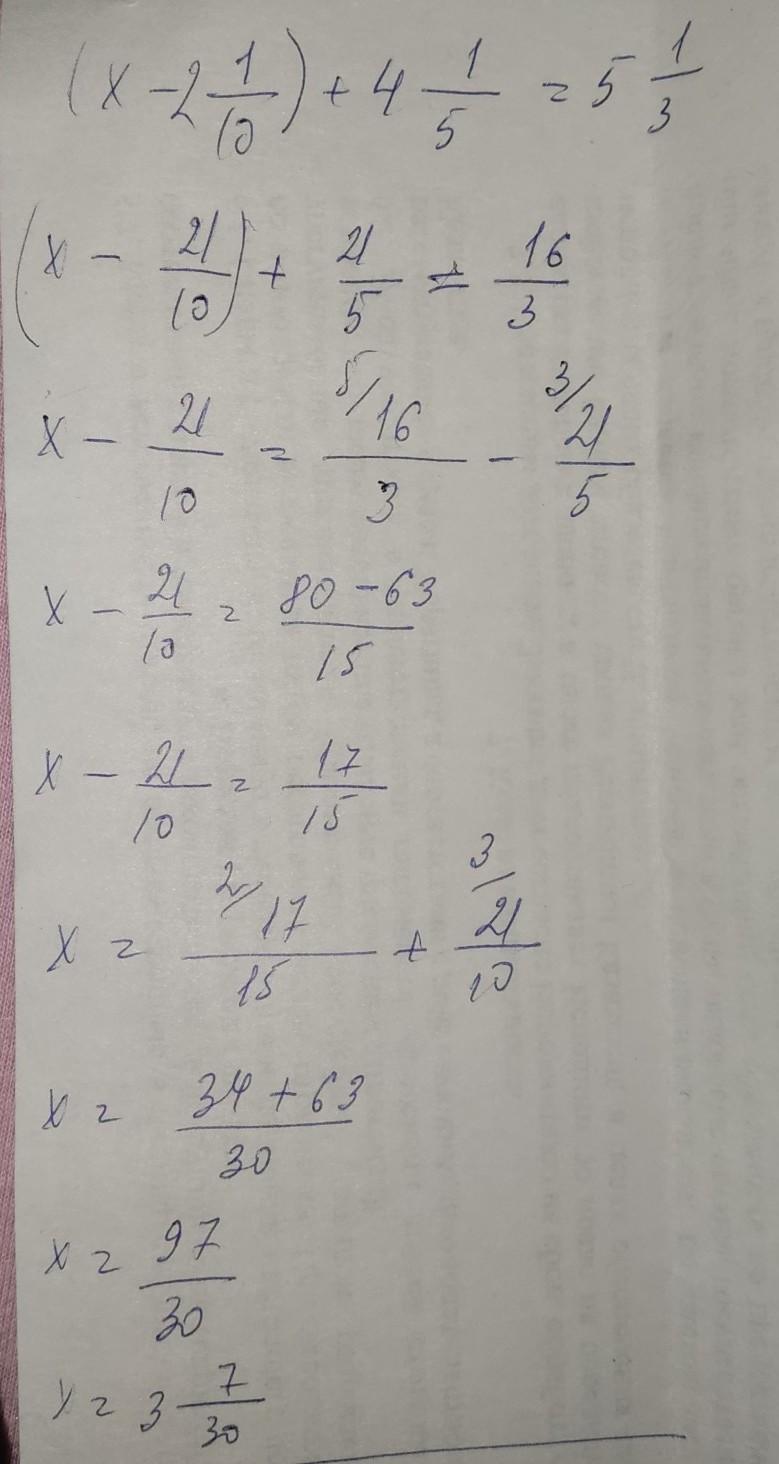 (x - 2 1/10) + 4 1/5 = 5 1/3
(x - 21/10) + 21/5 = 16/3
x - 21/10 = ⁵⁄ 16/3 - ³⁄ 21/5
x - 21/10 = (80 - 63)/15
x - 21/10 = 17/15
x = ²⁄ 17/15 + ³⁄ 21/10
x = (34 + 63)/30
x = 97/30
x = 3 7/30